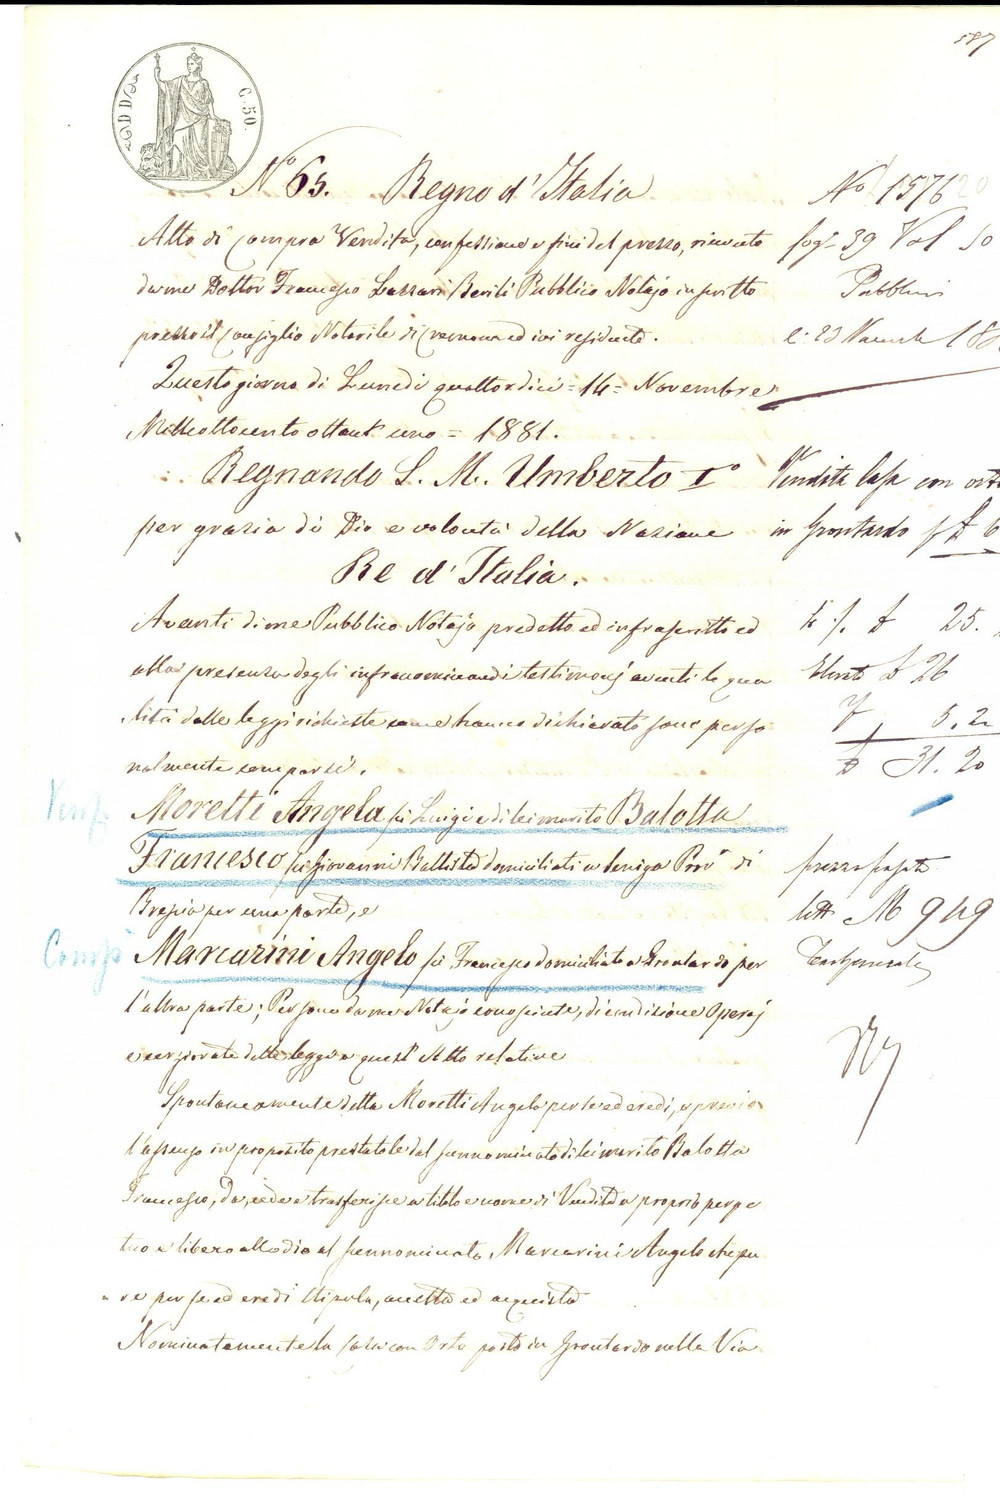 587
C. 50.
N.° 65. Regno d'Italia
Atto di Compra Vendita, confessione e fini del prezzo, ricevuto
da me Dottor Francesco Lazzari Beviti Pubblico Notajo inscritto
presso il Consiglio Notarile di Cremona ed ivi residente.
Questo giorno di Lunedì quattordici = 14 = Novembre
Milleottocento ottant'uno = 1881.
Regnando S. M. Umberto I°
per grazia di Dio e volontà della Nazione
Re d'Italia.
Avanti di me Pubblico Notajo predetto ed infrascritto ed
alla presenza degli infranominandi testimonj aventi le qua
lità dalle leggi richieste come hanno dichiarato sono perso
nalmente comparsi.
Vend.
Moretti Angela fu Luigi e di lei marito Balotta
Francesco fu Giovanni Battista domiciliati a Seniga Prov.ª di
Brescia per una parte, e
Comp.
Marcarini Angelo fu Francesco domiciliato a Grontardo per
l'altra parte; Persone da me Notajo conosciute, di condizione Operaj
e non vietate dalle leggi a quest'Atto relative
Spontaneamente detta Moretti Angela per se ed eredi, e previo
l'assenso in proposito prestatole dal sunnominato di lei marito Balotta
Francesco, dà, cede e trasferisce a titolo e nome di Vendita e proprio perpe
tuo e libero allodio al sunnominato Marcarini Angelo che pu
re per se ed eredi stipula, accetta ed acquista
Nominatamente la Casa con Orto posta in Grontardo nella Via
N.° 1576
fog.° 39 Vol 50
Pubblici
li 23 Novembre 188
Vendita Casa con orto
in Grontardo p £ 6
£ 25.
£ 26
5.2
£ 31.20
prezzo pagato
N 949